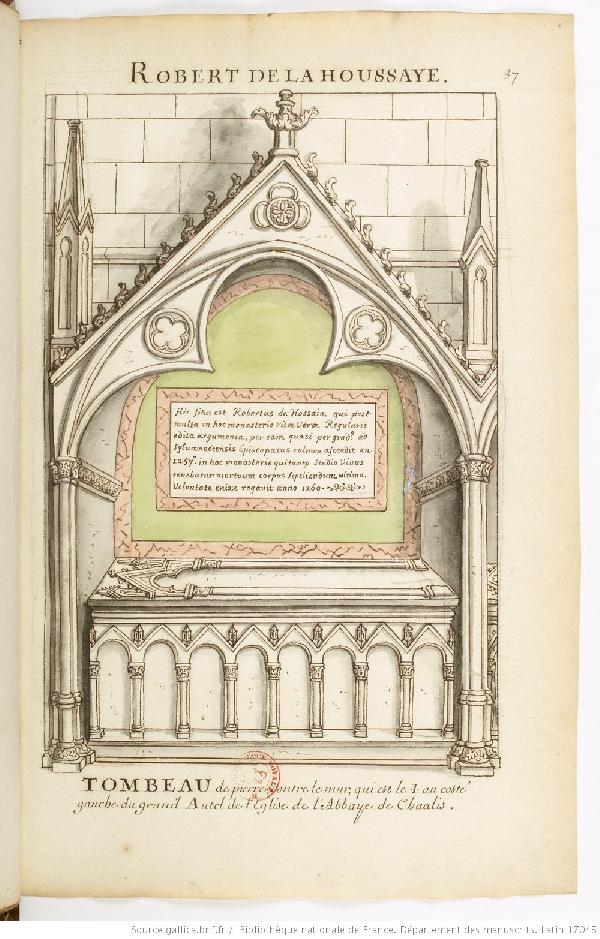 ROBERT DE LA HOUSSAYE.
37
Hic situs est Robertus de Hossaia, qui post
multa in hoc monasterio vitæ veræ Regularis
edita argumenta, per eam, quasi per grad. ad
Sylvanectensis Episcopatus culmen ascendit an
1257. in hoc monasterio qui tanto Studio Vivus
corpus sepeliendum, ultima
Volontate enixe rogavit anno 1260.
TOMBEAU de pierre contre le mur, qui est le 1 au costé
gauche du grand Autel de l'Eglise de l'Abbaye de Chaalis.
Source gallica.bnf.fr / Bibliothèque nationale de France. Département des manuscrits. Latin 17045